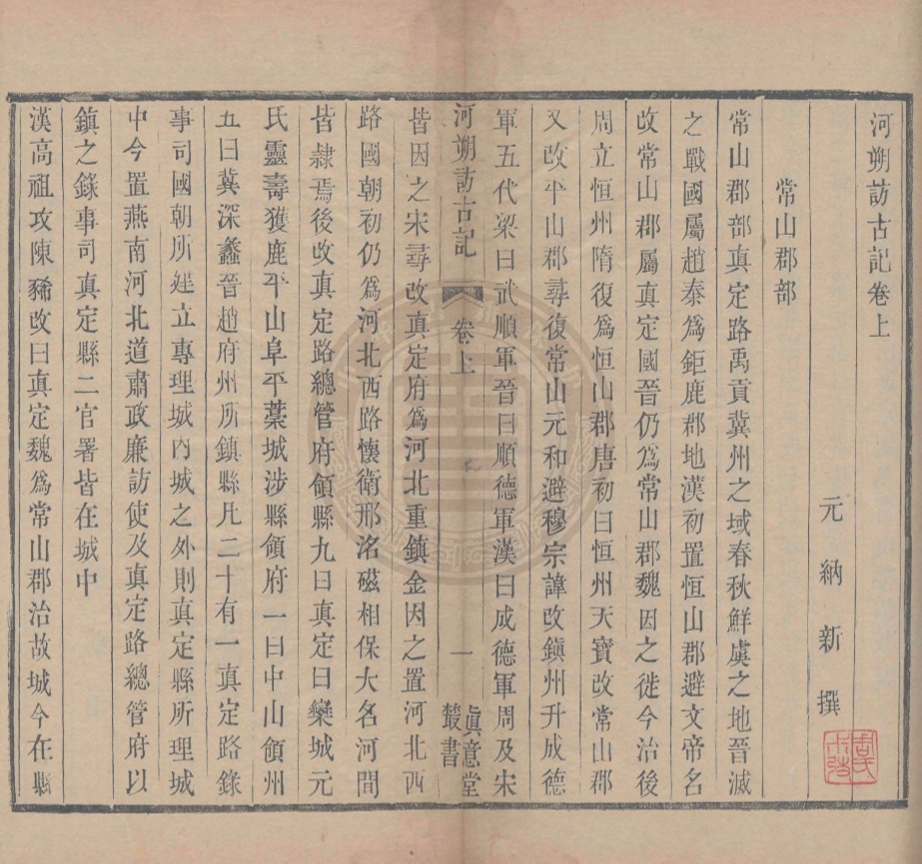 河朔訪古記卷上
元納新撰
常山郡部
常山郡部真定路禹貢冀州之域春秋鮮虞之地晉滅
之戰國屬趙秦爲鉅鹿郡地漢初置恒山郡避文帝名
改常山郡屬真定國晉仍爲常山郡魏因之徙今治後
周立恒州隋復爲恒山郡唐初曰恒州天寶改常山郡
又改平山郡尋復常山元和避穆宗諱改鎭州升成德
軍五代梁曰武順軍晉曰順德軍漢曰成德軍周及宋
河朔訪古記 卷上 一 眞意堂叢書
皆因之宋尋改真定府爲河北重鎮金因之置河北西
路國朝初仍爲河北西路懷衛邢洺磁相保大名河間
皆隸焉後改真定路總管府領縣九曰真定曰欒城元
氏靈壽獲鹿平山阜平藁城涉縣領府一曰中山領州
五曰冀深蠡晉趙府州所鎮縣凡二十有一真定路錄
事司國朝所建立專理城內城之外則真定縣所理城
中今置燕南河北道肅政廉訪使及真定路總管府以
鎮之錄事司真定縣二官署皆在城中
漢高祖攻陳豨改曰真定魏爲常山郡治故城今在縣